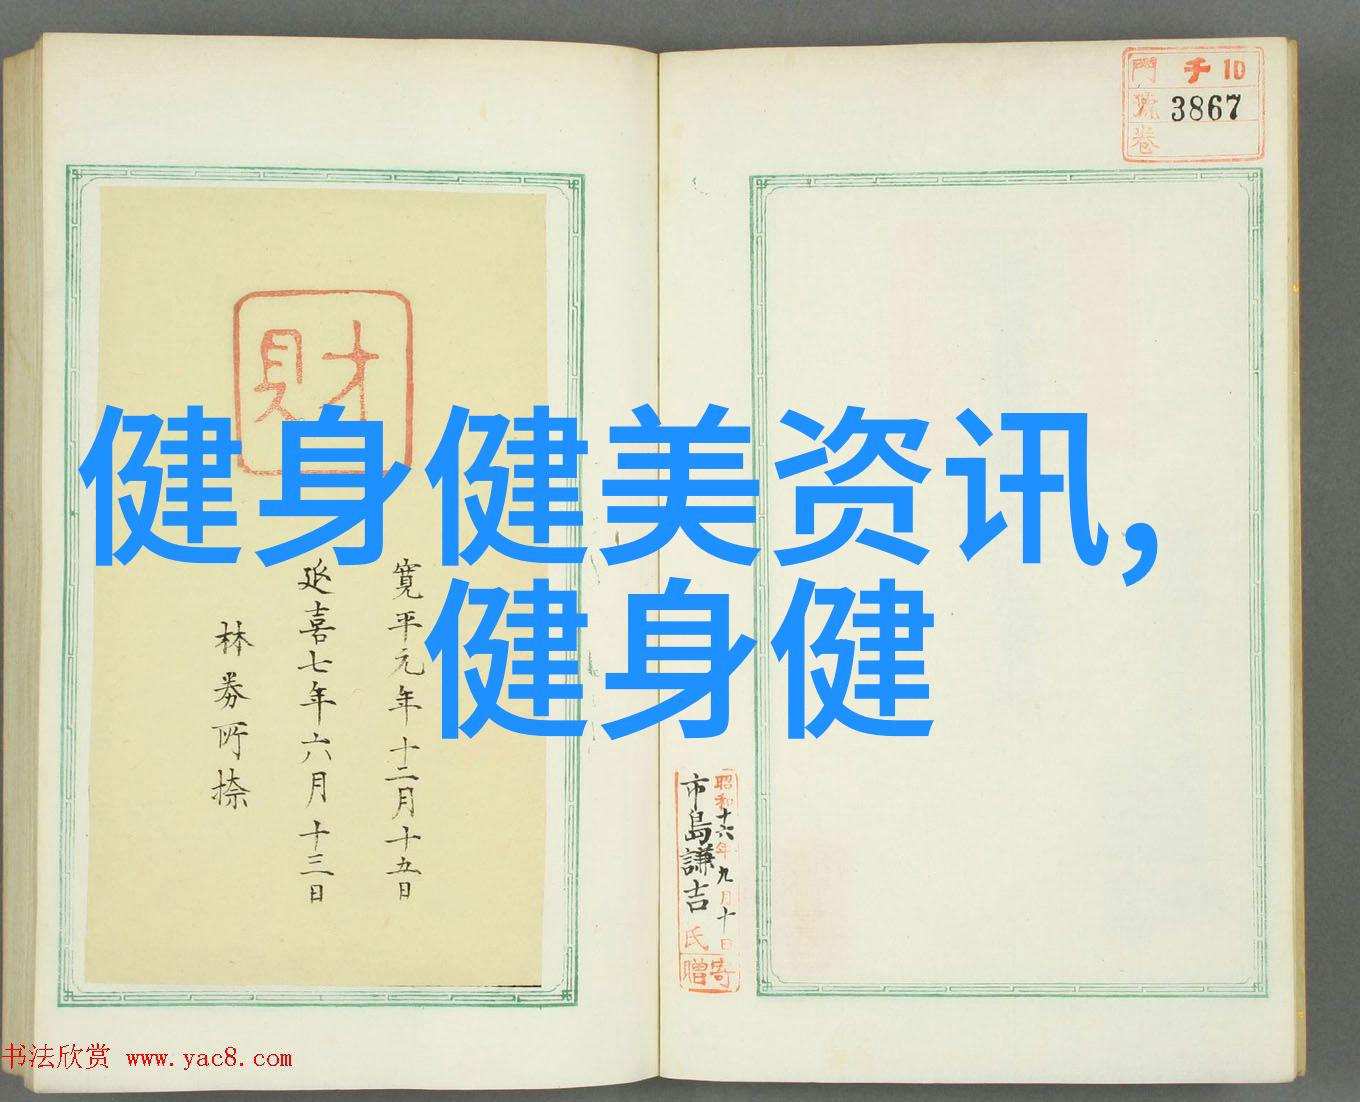 門 千 10
號 3867
卷
財
健身健美资讯,
健身健
寛平元年十二月十五日
延喜七年六月十三日
昭和十六年九月十日寄
市島謙吉氏贈
书法欣赏 www.yac8.com